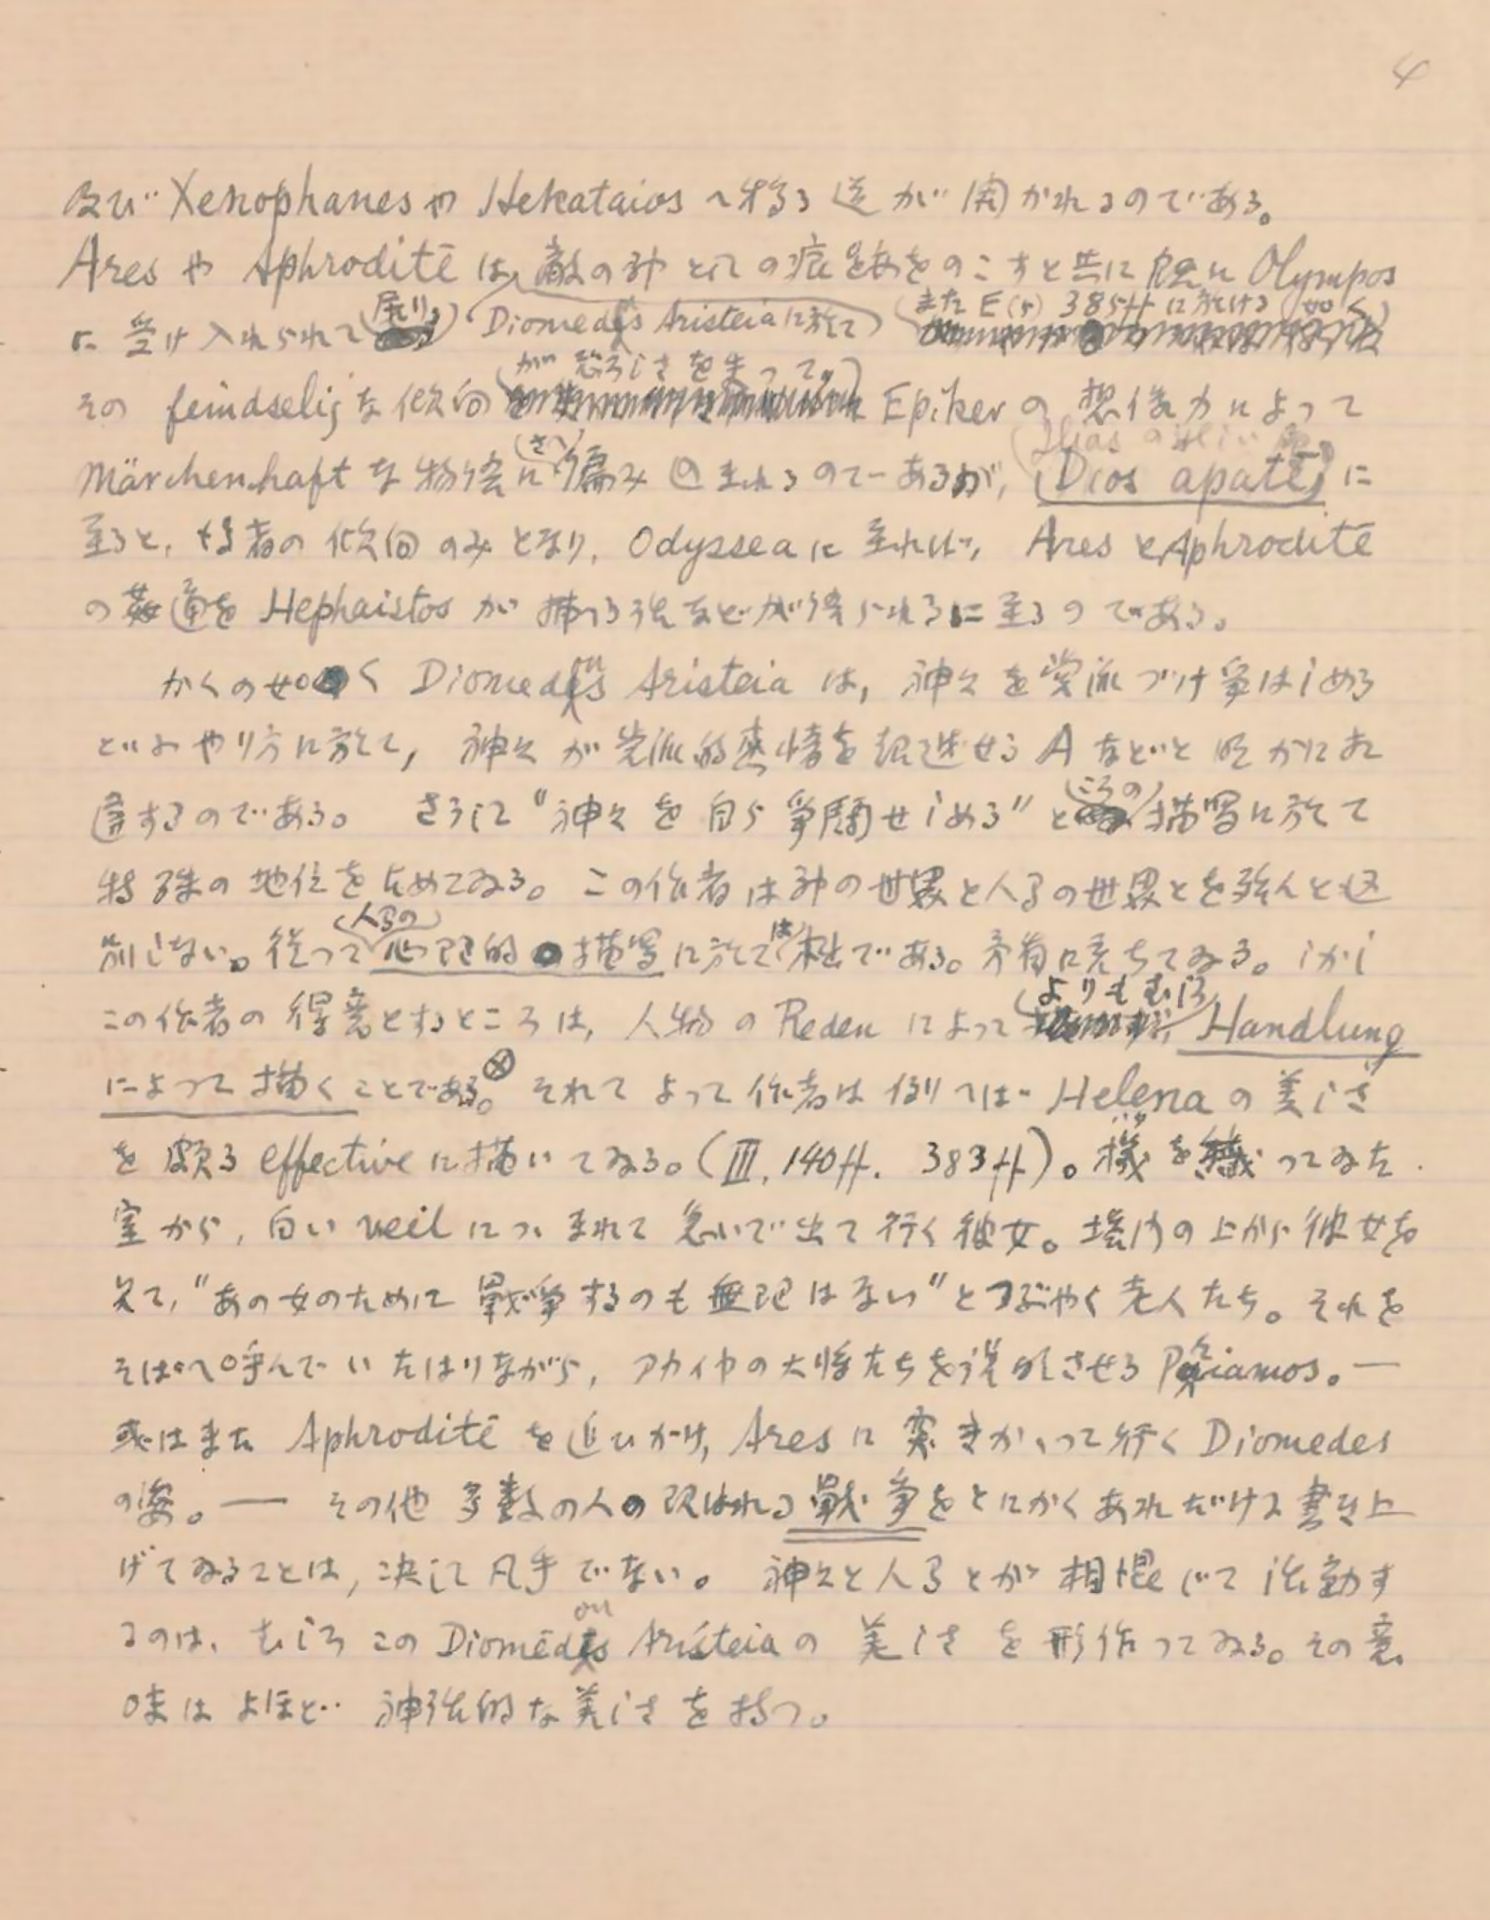 4
及び Xenophanes や Hekataios へ移る道が開かれるのである。
Ares や Aphroditē は、敵の神としての痕跡をのこすと共に既に Olympos
に受け入れられて居り、(Diomedes Aristeia に於て) (また E(5) 385ff に於ける如く)
その feindselig な傾向が恐ろしさを失って、Epiker の想像力によって
Märchenhaft な物語にさへ編み込まれるのであるが, Dios apatē に
至ると, 後者の傾向のみとなり, Odyssea に至れば, Ares と Aphroditē
の姦通を Hephaistos が捕へる話などが語られるに至るのである。
かくの如く Diomedou Aristeia は, 神々を党派づけ争はしめる
といふやり方に於て, 神々が党派的感情を超越せる A などと明かに
するのである。 さうして "神々を自ら爭鬪せしめる" ところの描写に於て
特殊の地位を占めてゐる。この作者は神の世界と人間の世界とを殆んど区
別しない。従って人間の心理的描写に於ては粗である。矛盾に充ちてゐる。しかし
この作者の得意とするところは, 人物の Reden によってよりもむしろ Handlung
によって描くことである。⊗ それによって作者は例へば Helena の美しさ
を頗る effective に描いてゐる。(III. 140ff. 383ff)。機を織ってゐた
室から, 白い veil につゝまれて急いで出て行く彼女。塔門の上から彼女を
見て, "あの女のために戰爭するのも無理はない" とつぶやく老人たち。それを
そばへ呼んでいたはりながら, アカイヤの大将たちを説明させる Priamos。—
或はまた Aphroditē を追ひかけ, Ares に突きかゝって行く Diomedes
の姿。— その他多数の人の現はれる戰爭をとにかくあれだけに書き上
げてゐることは, 決して凡手でない。 神々と人間とが相混じて活動す
るのは、むしろこの Diomēdou Aristeia の美しさを形作ってゐる。その意
味はよほど神話的な美しさを持つ。